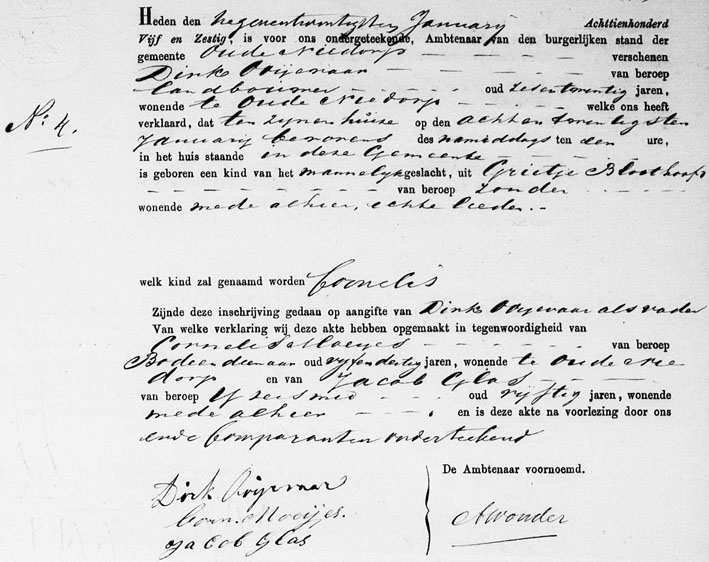 Heden den negenentwintigsten January Achttienhonderd
Vijf en Zestig, is voor ons ondergeteekende, Ambtenaar van den burgerlijken stand der
gemeente Oude Niedorp verschenen
Dirk Ooijevaar van beroep
Landbouwer oud zesentwintig jaren,
wonende te Oude Niedorp welke ons heeft
verklaard, dat ten zynen huize op den achtentwintigsten
January bevorens des namiddags ten een ure,
in het huis staande in deze Gemeente
No: 4.
is geboren een kind van het mannelyk geslacht, uit Grietje Bloothoofd
van beroep zonder
wonende mede alhier, echte lieden.
welk kind zal genaamd worden Cornelis
Zijnde deze inschrijving gedaan op aangifte van Dirk Ooijevaar als vader
Van welke verklaring wij deze akte hebben opgemaakt in tegenwoordigheid van
Cornelis Moeyes van beroep
Bode en dienaar oud vyfendertig jaren, wonende te Oude Nie
dorp en van Jacob Glas
van beroep Yzersmid oud vyftig jaren, wonende
mede alhier en is deze akte na voorlezing door ons
ende Comparanten onderteekend
De Ambtenaar voornoemd.
Dirk Ooijevaar
Corn. Moeijes.
Jacob Glas
AWonder